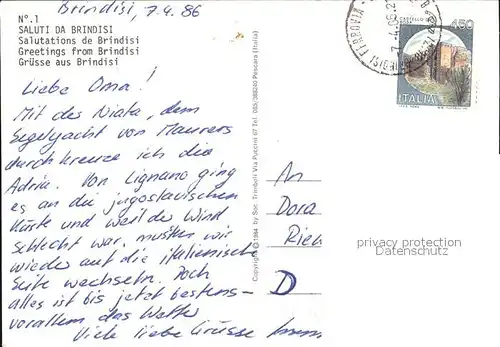 Brindisi, 7.4.86
N°.1
SALUTI DA BRINDISI
Salutations de Brindisi
Greetings from Brindisi
Grüsse aus Brindisi
Liebe Oma!
Mit des Niata, dem
Segelyacht von Maurers
durchkreuze ich die
Adria. Von Lignano ging
es an die jugoslavischen
Küste und weil der Wind
schlecht war, mußten wir
wieder auf die italienische
Seite wechseln. Doch
alles ist bis jetzt bestens-
vorallem das Wetter
Viele liebe Grüsse
Copyright © 1984 by Soc. Trimboli Via Puccini 67 Tel. 085/388240 Pescara (Italia)
BRINDISI FERROVIA
450
ITALIA
An
Dora
Rien
D
privacy protection
Datenschutz